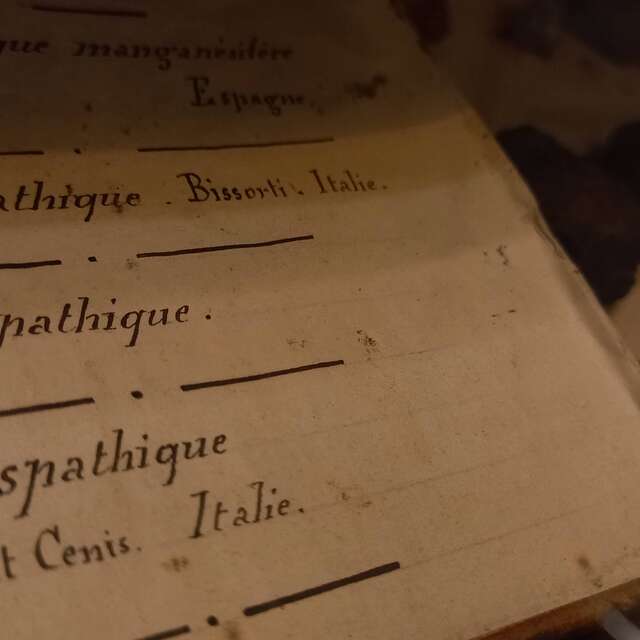 que manganésifère
Espagne.
athique . Bissorti . Italie.
pathique .
spathique
t Cenis. Italie.